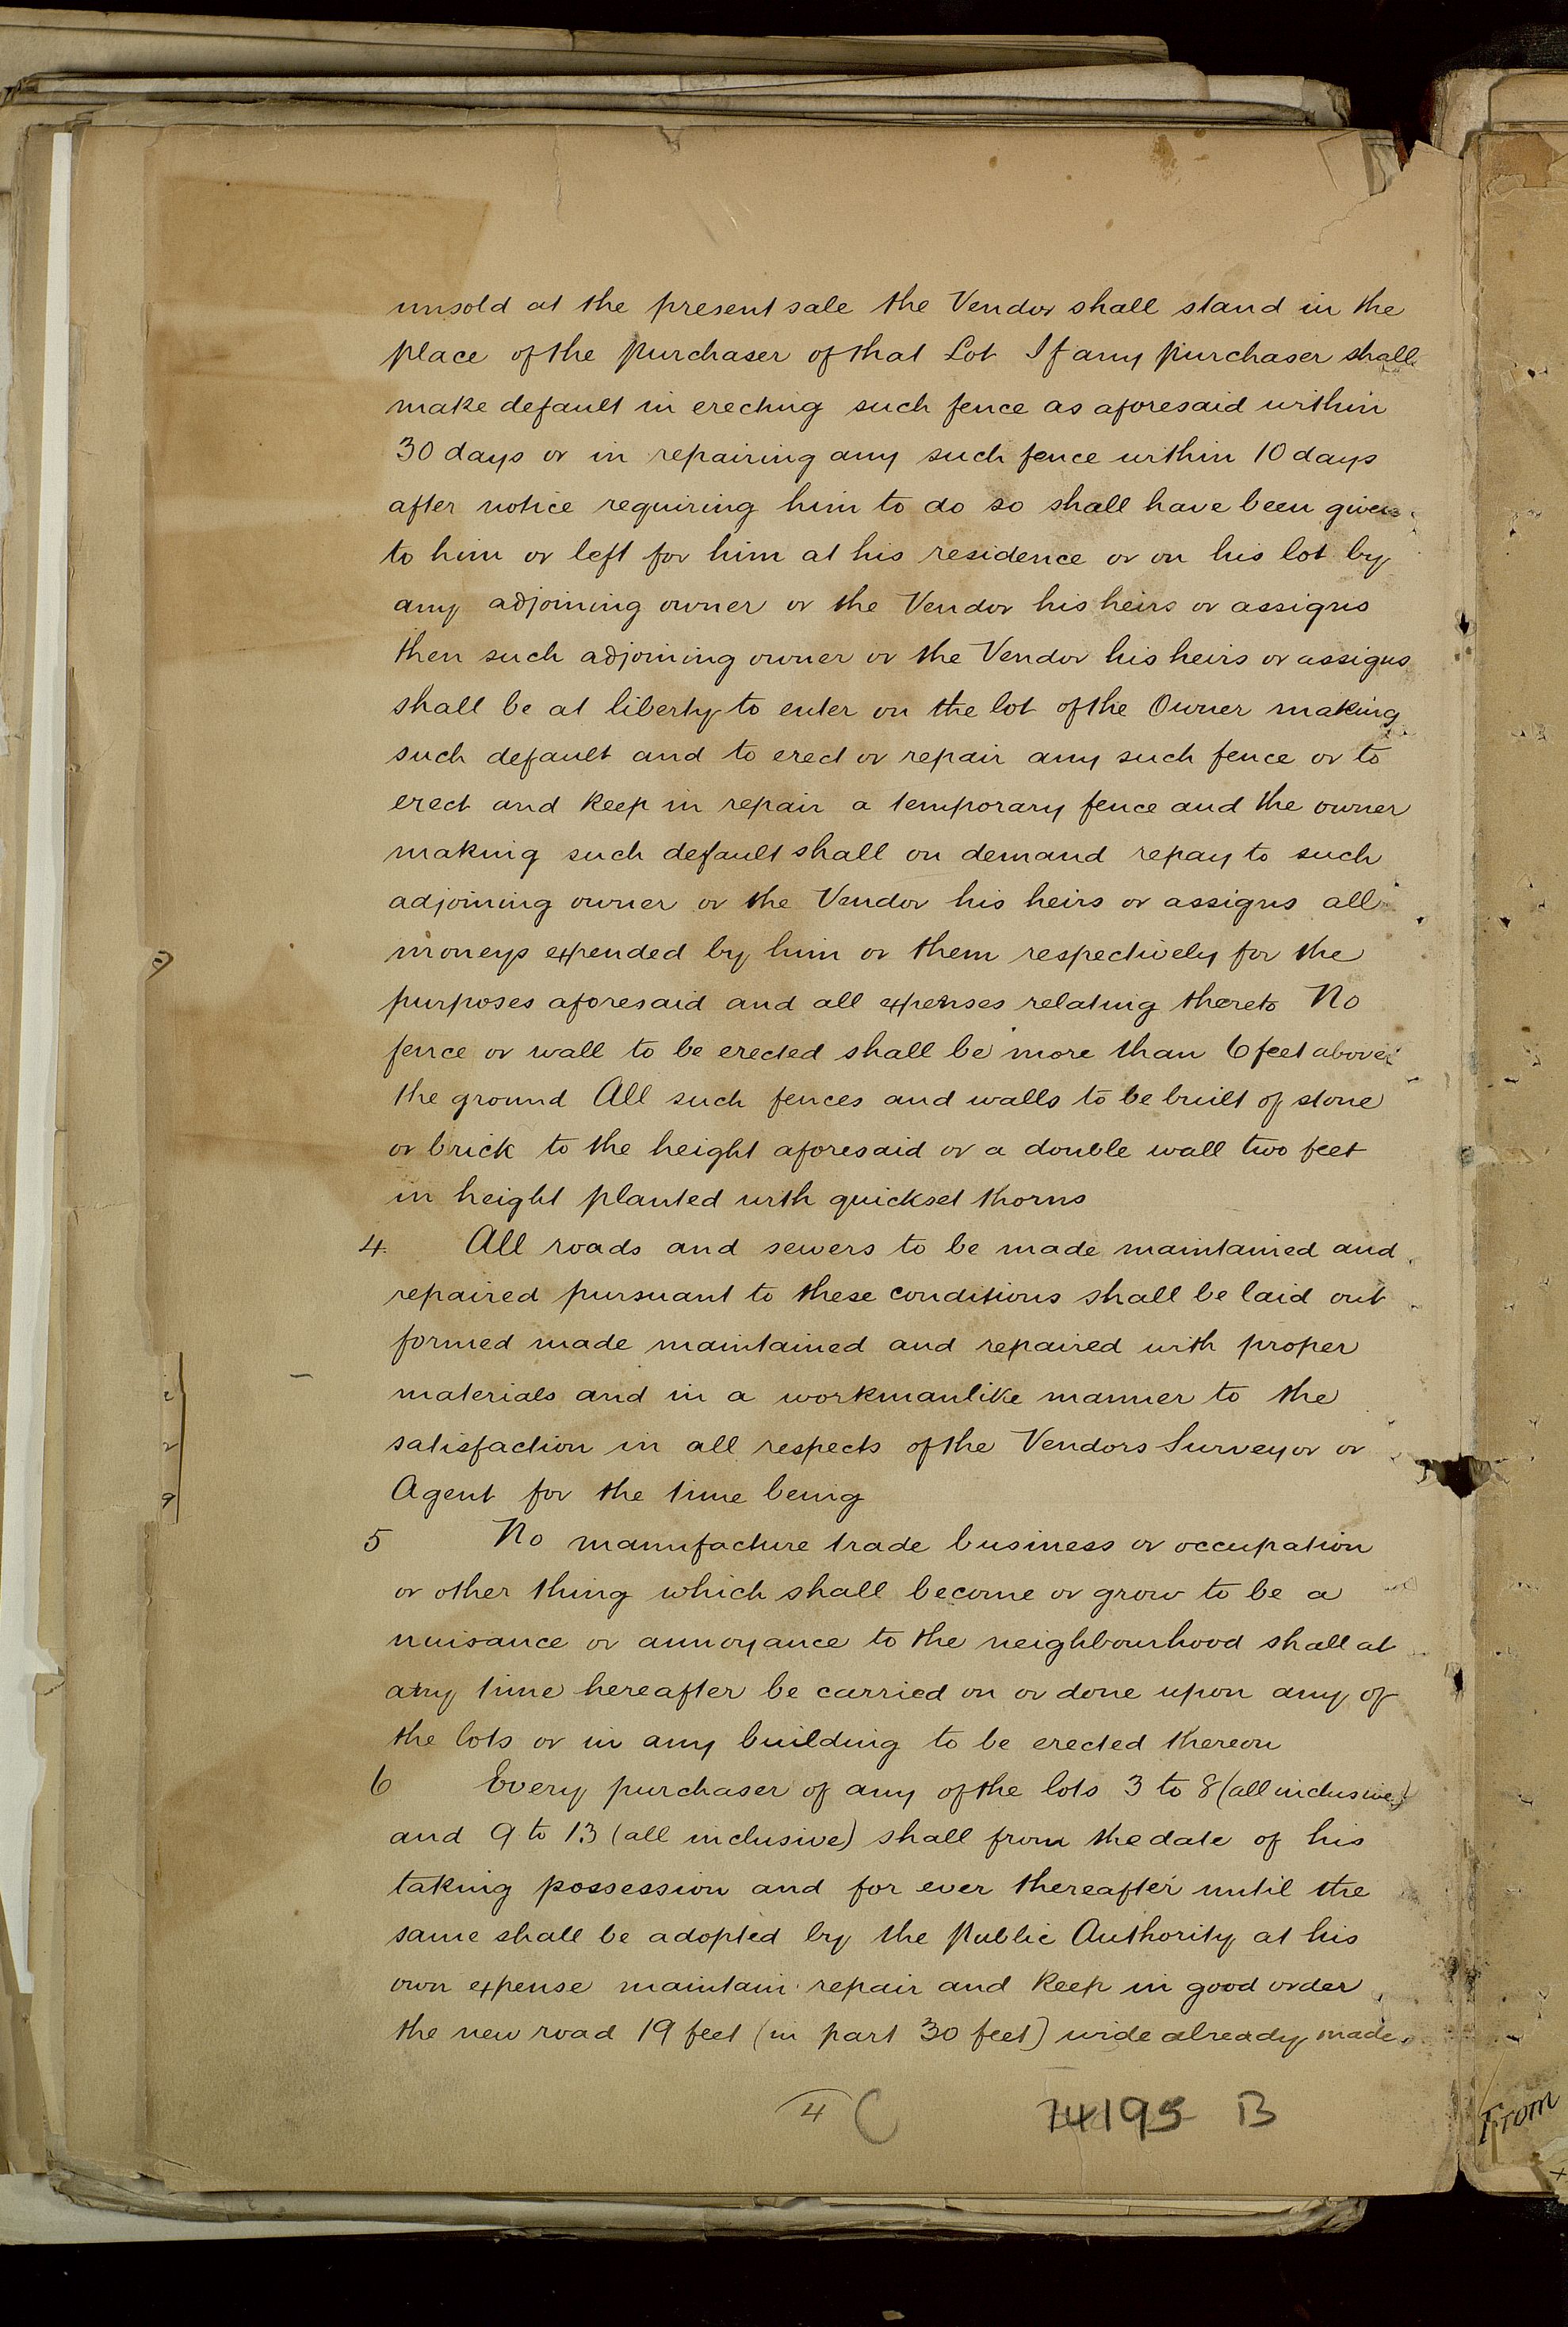 unsold at the present sale the Vendor shall stand in the
place of the purchaser of that Lot If any purchaser shall
make default in erecting such fence as aforesaid within
30 days or in repairing any such fence within 10 days
after notice requiring him to do so shall have been given
to him or left for him at his residence or on his lot by
any adjoining owner or the Vendor his heirs or assigns
then such adjoining owner or the Vendor his heirs or assigns
shall be at liberty to enter on the lot of the Owner making
such default and to erect or repair any such fence or to
erect and keep in repair a temporary fence and the owner
making such default shall on demand repay to such
adjoining owner or the Vendor his heirs or assigns all
moneys expended by him or them respectively for the
purposes aforesaid and all expenses relating thereto No
fence or wall to be erected shall be more than 6 feet above
the ground All such fences and walls to be built of stone
or brick to the height aforesaid or a double wall two feet
in height planted with quickset thorns
4. All roads and sewers to be made maintained and
repaired pursuant to these conditions shall be laid out
formed made maintained and repaired with proper
materials and in a workmanlike manner to the
satisfaction in all respects of the Vendors Surveyor or
Agent for the time being
5 No manufacture trade business or occupation
or other thing which shall become or grow to be a
nuisance or annoyance to the neighbourhood shall at
any time hereafter be carried on or done upon any of
the lots or in any building to be erected thereon
6 Every purchaser of any of the lots 3 to 8 (all inclusive)
and 9 to 13 (all inclusive) shall from the date of his
taking possession and for ever thereafter until the
same shall be adopted by the Public Authority at his
own expense maintain repair and keep in good order
the new road 19 feet (in part 30 feet) wide already made
4 C 74195 B
From